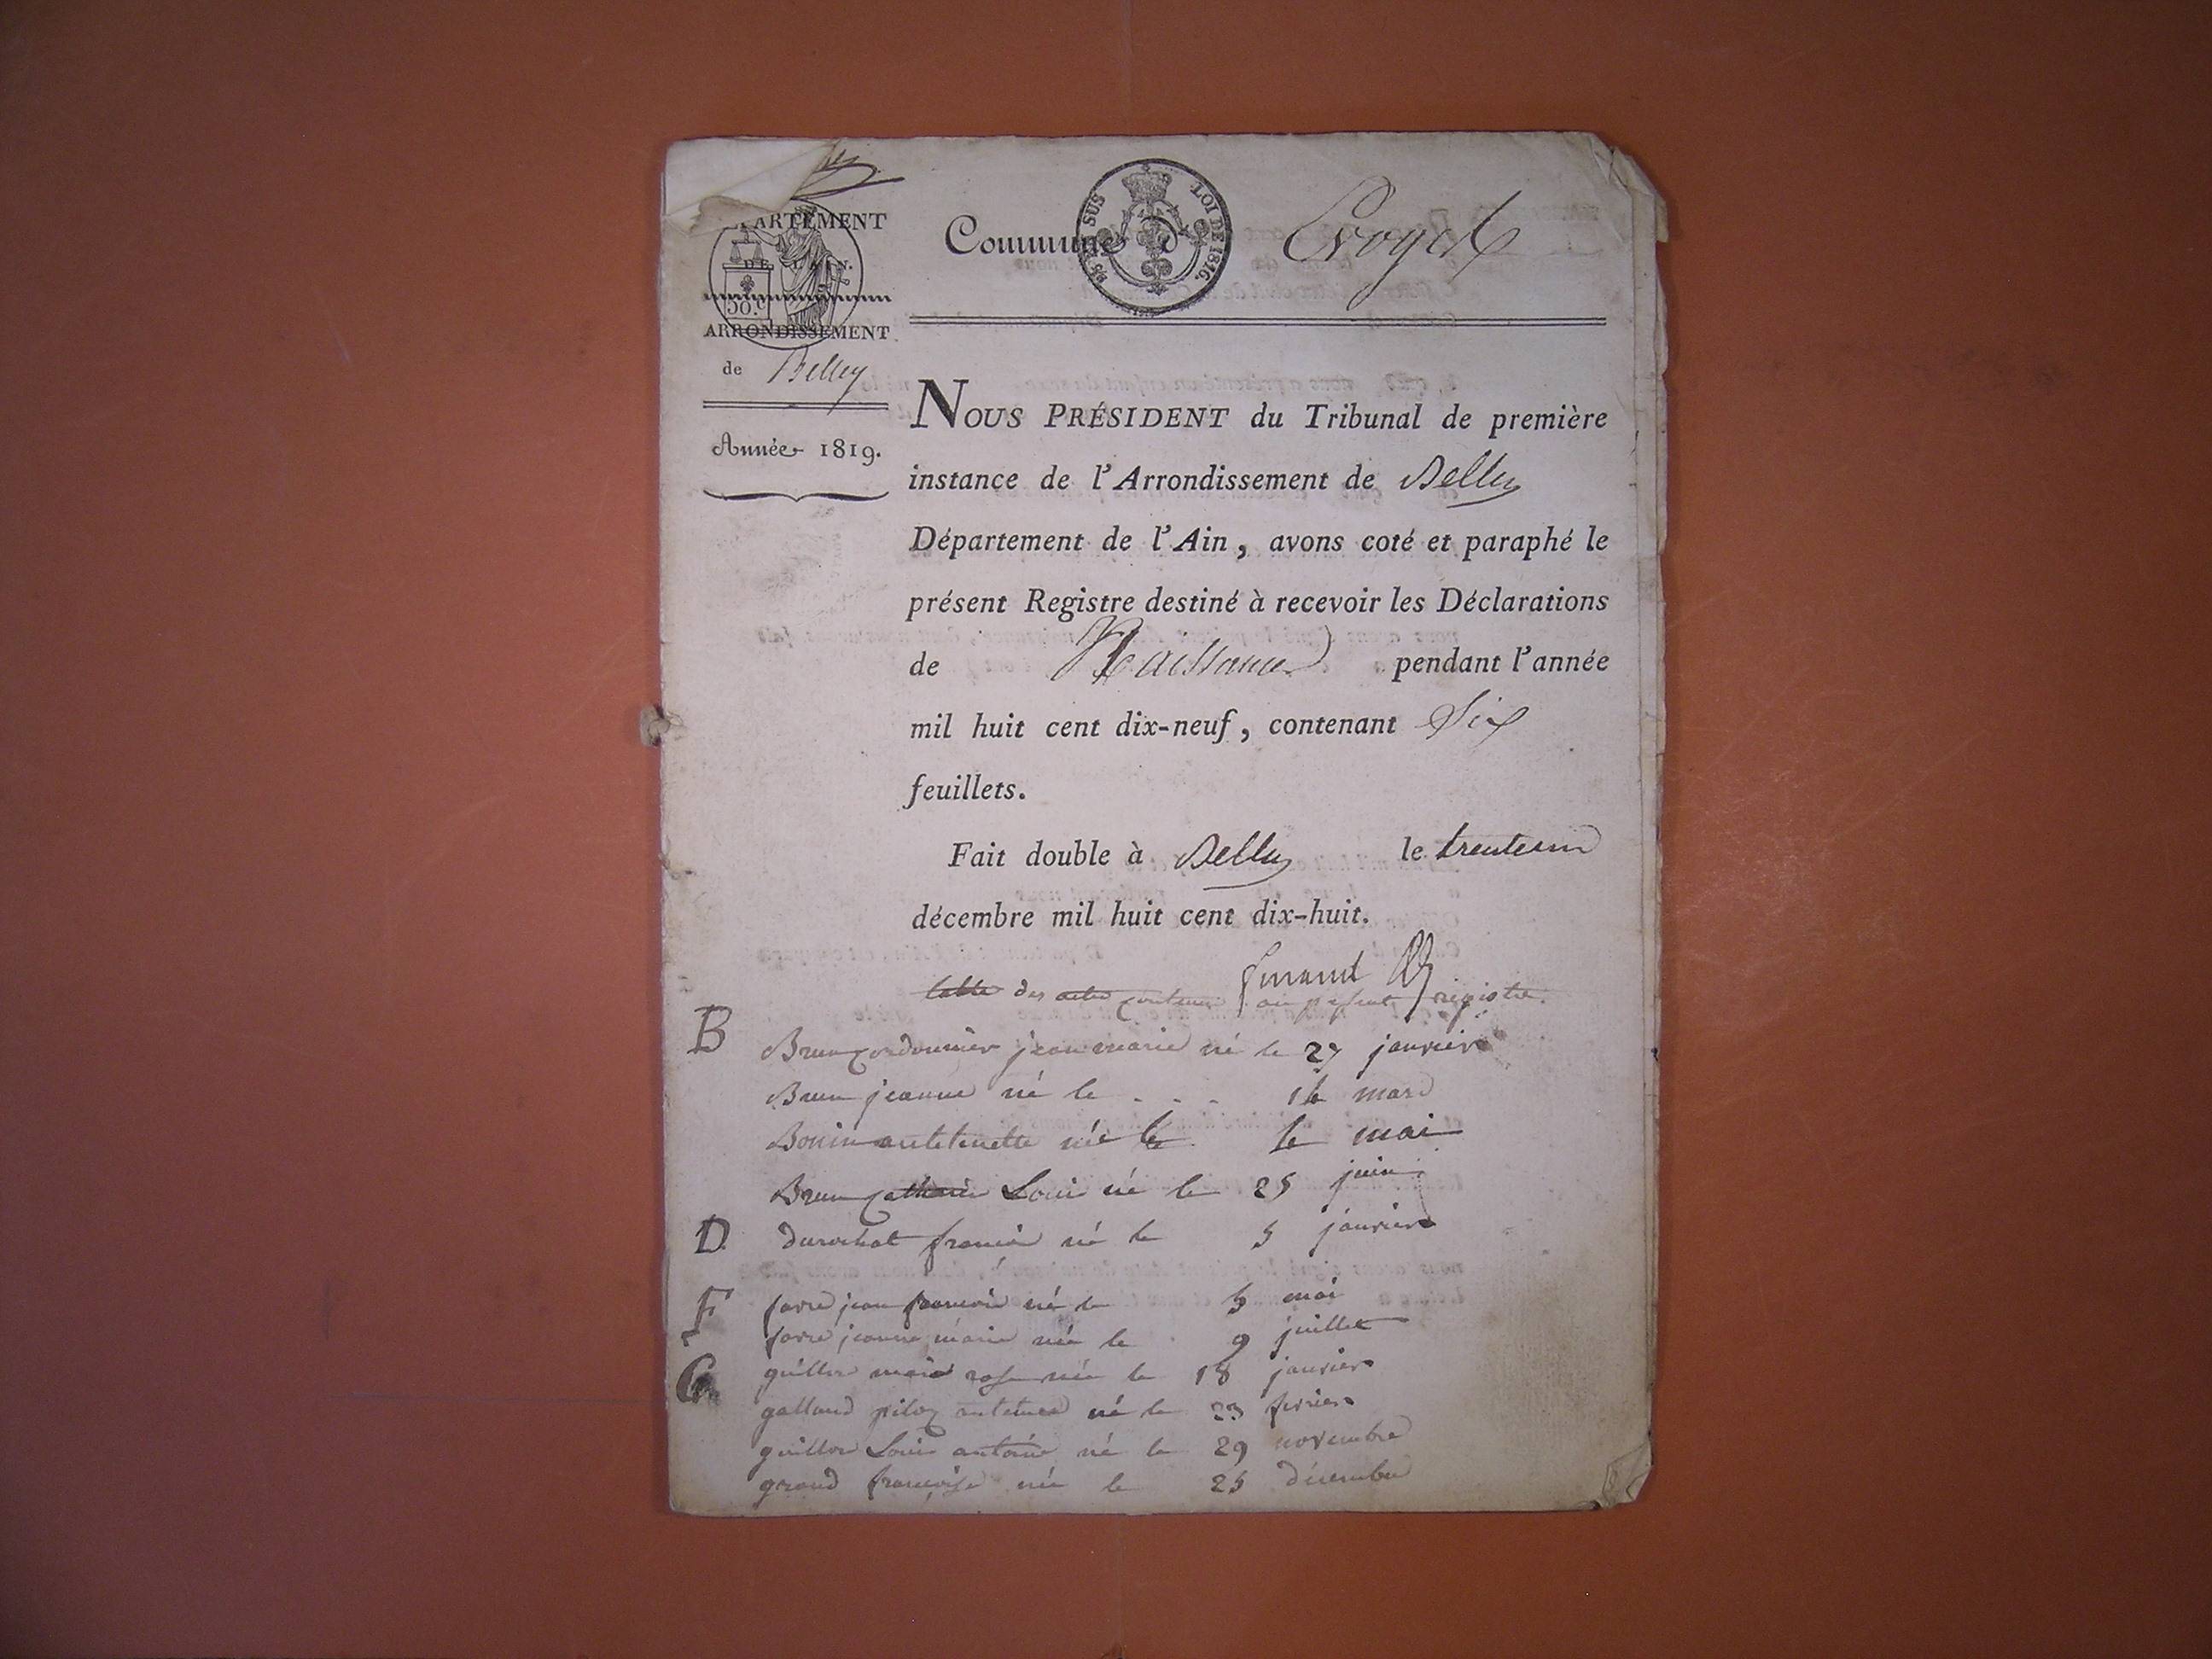 PARTEMENT
DE L'AIN.
50.C
ARRONDISSEMENT
de Belley
Année 1819.
EN SUS
LOI DE 1816.
Commune d
NOUS PRÉSIDENT du Tribunal de première
instance de l'Arrondissement de Belley
Département de l'Ain, avons coté et paraphé le
présent Registre destiné à recevoir les Déclarations
de Naissance pendant l'année
mil huit cent dix-neuf, contenant Six
feuillets.
Fait double à Belley le trenteun
décembre mil huit cent dix-huit.
table des actes contenus au présent registre.
B
Brun cordonnier jean marie né le 27 janvier
Brun jeanne né le . . . 16 mars
née le le mai
Brun Loui né le 25 juin
D
durochat né le 5 janvier
F
favre jean françois né le 5 mai
favre jeanne marie née le 9 juillet
G
guillon marie rose née le 18 janvier
galland né le 23 fevrier
guillon Loui antoine né le 29 novembre
grand françoise née le 25 décembre